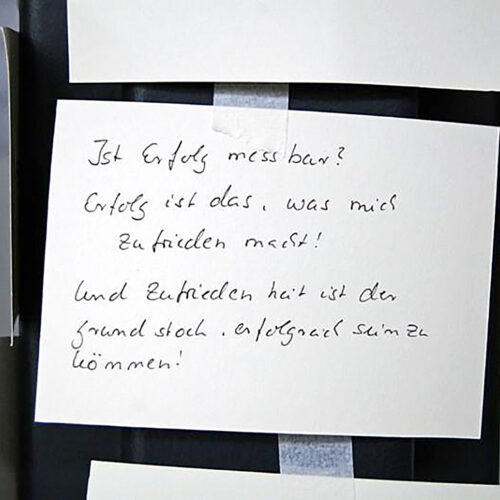 Ist Erfolg messbar?
Erfolg ist das, was mich
zufrieden macht!
Und Zufriedenheit ist der
Grundstock, erfolgreich sein zu
können!